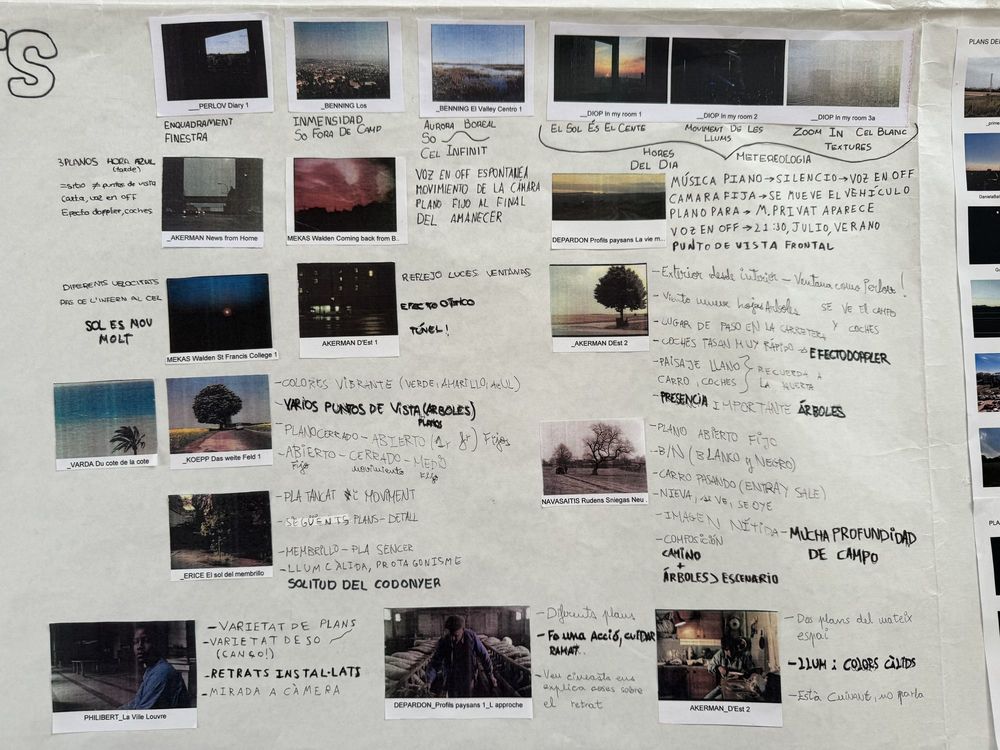 TS
__PERLOV Diary 1
ENQUADRAMENT
FINESTRA
_BENNING Los
INMENSIDAD
SO FORA DE CAMP
_BENNING El Valley Centro 1
AURORA BOREAL
SO
CEL INFINIT
__DIOP In my room 1
_DIOP In my room 2
_DIOP In my room 3a
EL SOL ÉS EL CENTE
MOVIMENT DE LES
LLUMS.
ZOOM IN CEL BLANC
TEXTURES
HORES
DEL DIA
METEREOLOGIA
3 PLANOS HORA AZUL
(tarde)
=sitio ≠ puntos de vista
Carta, voz en OFF
Efecto doppler, coches
_AKERMAN News from Home
MEKAS Walden Coming back from B..
VOZ EN OFF ESPONTÁNEA
MOVIMIENTO DE LA CÁMARA
PLANO FIJO AL FINAL
DEL AMANECER
DEPARDON Profils paysans La vie m..
MÚSICA PIANO→SILENCIO→VOZ EN OFF
CAMARA FIJA→SE MUEVE EL VEHÍCULO
PLANO PARA→M. PRIVAT APARECE
VOZ EN OFF→21:30, JULIO, VERANO
PUNTO DE VISTA FRONTAL
DIFERENTS VELOCITATS
PAS DE L'INFERN AL CEL
SOL ES MOU
MOLT
MEKAS Walden St Francis College 1
AKERMAN D'Est 1
REFLEJO LUCES VENTANAS
EFECTO ÓPTICO
TÚNEL!
_AKERMAN DEst 2
-Exterior desde interior - Ventana como Perlov!
-Viento mueve hojas Arboles SE VE EL CAMPO
-LUGAR DE PASO EN LA CARRETERA Y COCHES
-COCHES PASAN MUY RÁPIDO→EFECTO DOPPLER
-PAISAJE LLANO } RECUERDA A
CARRO, COCHES } LA HUERTA
-PRESENCIA IMPORTANTE ÁRBOLES
_VARDA Du cote de la cote
_KOEPP Das weite Feld 1
-COLORES VIBRANTE (VERDE, AMARILLO, AZUL)
-VARIOS PUNTOS DE VISTA (ÁRBOLES)
PLANOS
-PLANO CERRADO-ABIERTO Fijos
-ABIERTO-CERRADO-MEDIO
Fijo movimiento Fijo
NAVASAITIS Rudens Sniegas Neu..
-PLANO ABIERTO FIJO
-B/N (BLANCO y NEGRO)
-CARRO PASANDO (ENTRA Y SALE)
-NIEVA, SE VE, SE OYE
-IMAGEN NÍTIDA-MUCHA PROFUNDIDAD
DE CAMPO
-COMPOSICIÓN
CAMINO
+
ÁRBOLES > ESCENARIO
_ERICE El sol del membrillo
-PLA TANCAT MOVIMENT
-SEGÜENTS PLANS-DETALL
-MEMBRILLO-PLA SENCER
-LLUM CÀLIDA, PROTAGONISME
SOLITUD DEL CODONYER
PHILIBERT_La Ville Louvre
-VARIETAT DE PLANS
-VARIETAT DE SO
(CANÇO!)
-RETRATS INSTAL·LATS
-MIRADA A CÀMERA
DEPARDON_Profils paysans 1_L approche
-Diferents plans
-Fa una Acció, cuidar
RAMAT.
-Veu cineasta ens
explica coses sobre
el retrat
AKERMAN_D'Est 2
-Dos plans del mateix
espai
-LLUM: COLORS CÀLIDS
-Està cuinant, no parla
PLANS DE